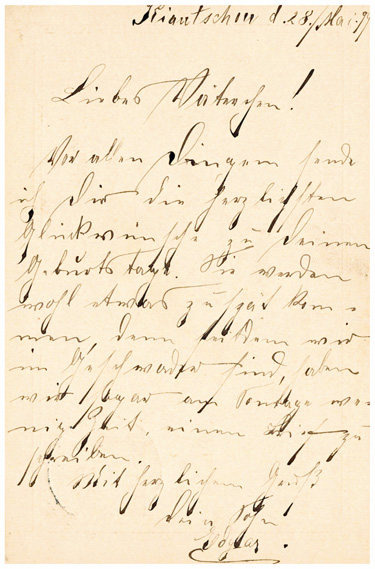 Kiautschou d. 28. Mai. 99
Liebes Väterchen!
Vor allen Dingen sende
ich Dir die herzlichsten
Glückwünsche zu Deinem
Geburtstage. Sie werden
wohl etwas zu spät kom-
men, denn seitdem wir
im Geschwader sind, haben
wir sogar am Sontage we-
nig Zeit, einen Brief zu
schreiben.
Mit herzlichem Gruß
Dein Sohn